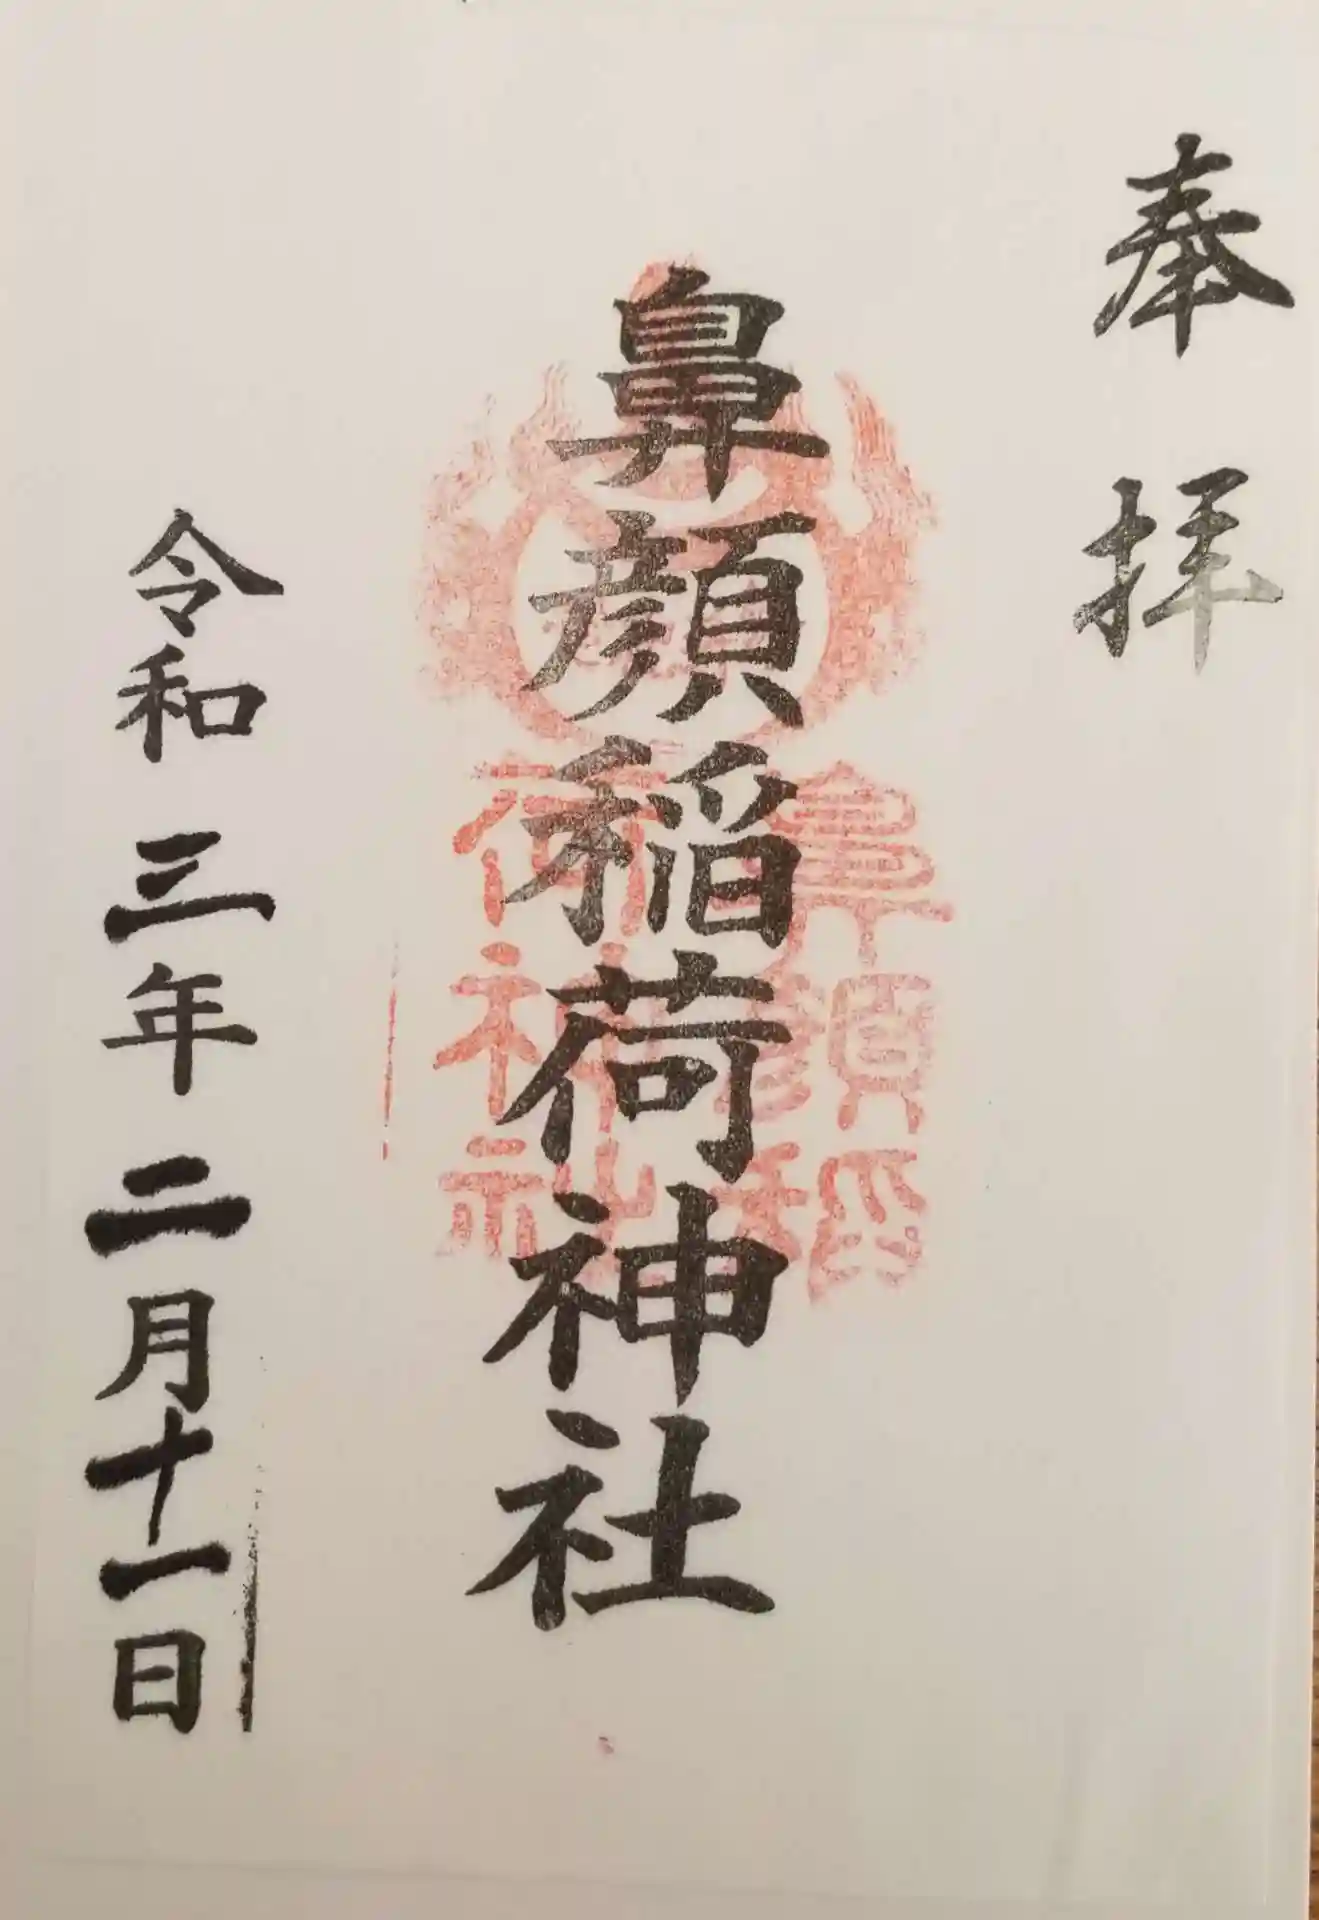 奉拝
鼻顔稲荷神社
鼻顔稲
荷神社
令和三年二月十一日